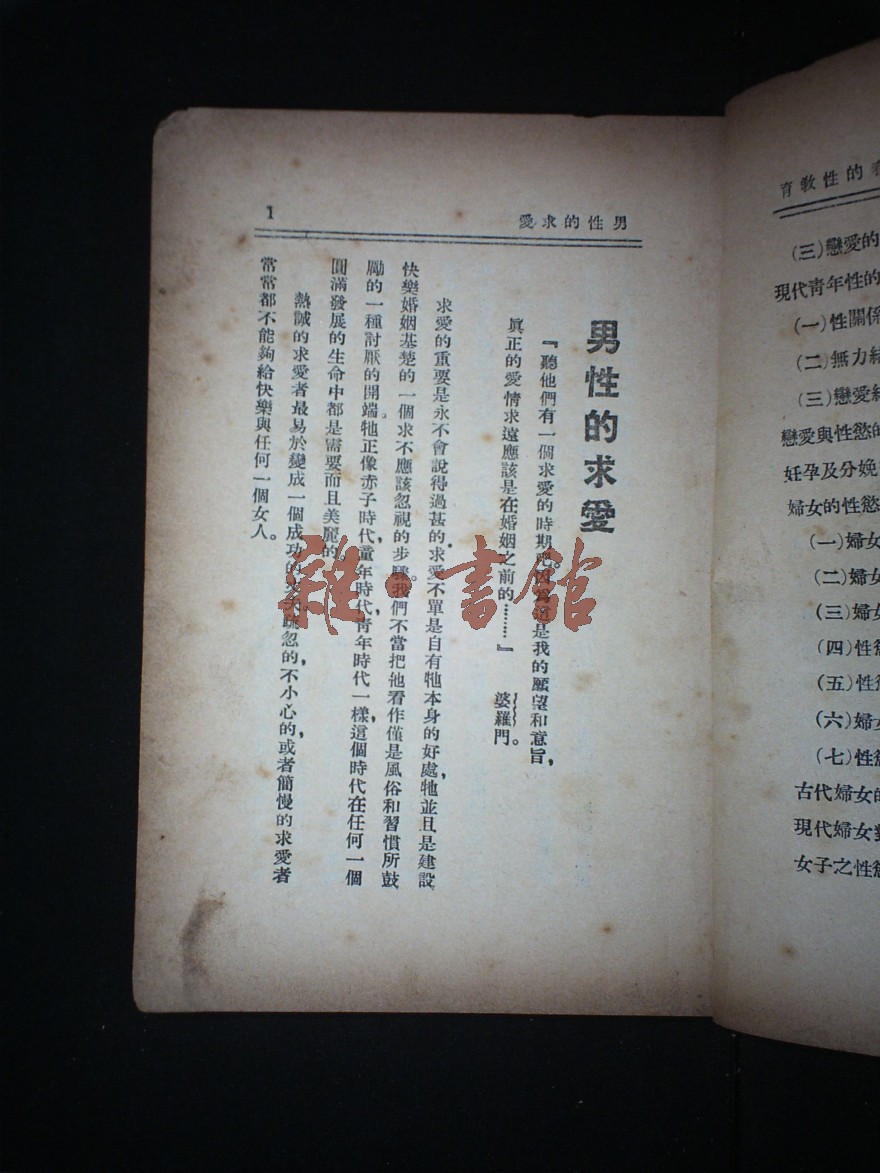 育教性的
(三)戀愛的
現代靑年性的
(一)性關係
(二)無力結
(三)戀愛結
戀愛與性慾的
妊孕及分娩
婦女的性慾
(一)婦女
(二)婦女
(三)婦女
(四)性慾
(五)性慾
(六)婦女
(七)性慾
古代婦女的
現代婦女對
女子之性慾
愛求的性男
1
男性的求愛
『聽他們有一個求愛的時期吧。因爲這是我的願望和意旨，
眞正的愛情求遠應該是在婚姻之前的………』 婆羅門。
求愛的重要是永不會說得過甚的，求愛不單是自有牠本身的好處，牠並且是建設
快樂婚姻基楚的一個求不應該忽視的步驟。我們不當把他看作僅是風俗和習慣所鼓
勵的一種討厭的開端。牠正像赤子時代，童年時代靑年時代一樣，這個時代在任何一個
圓滿發展的生命中都是需要而且美麗的。
熱誠的求愛者最易於變成一個成功的丈夫，疏忽的，不小心的，或者簡慢的求愛者
常常都不能夠給快樂與任何一個女人。
雜·書館